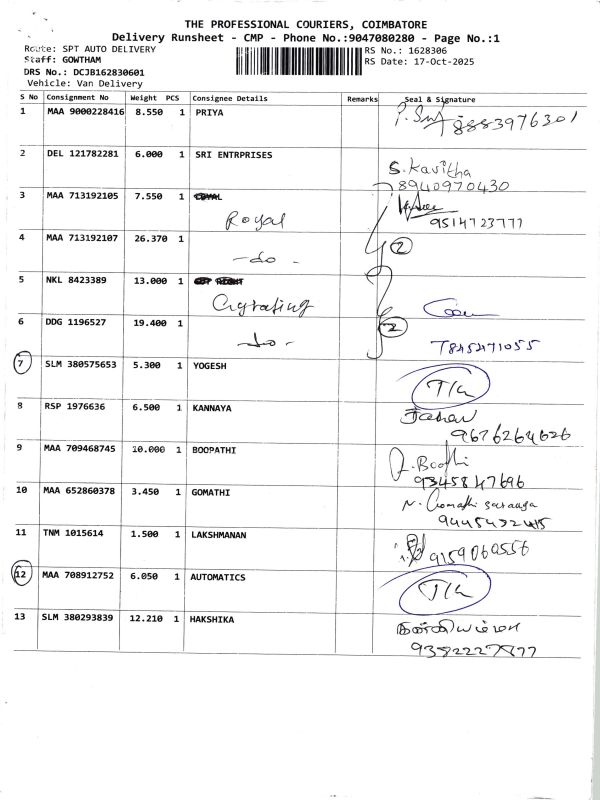 THE PROFESSIONAL COURIERS, COIMBATORE
Delivery Runsheet - CMP - Phone No.:9047080280 - Page No.:1
Route: SPT AUTO DELIVERY
RS No.: 1628306
Staff: GOWTHAM
RS Date: 17-Oct-2025
DRS No.: DCJB162830601
Vehicle: Van Delivery
S No Consignment No Weight PCS Consignee Details Remarks Seal & Signature
1 MAA 9000228416 8.550 1 PRIYA
8883976301
2 DEL 121782281 6.000 1 SRI ENTRPRISES
S. Kavitha
8940970430
3 MAA 713192105 7.550 1
Royal
9514723777
4 MAA 713192107 26.370 1
-do-
2
5 NKL 8423389 13.000 1
6 DDG 1196527 19.400 1
-do-
2
7845471055
7 SLM 380575653 5.300 1 YOGESH
8 RSP 1976636 6.500 1 KANNAYA
9676264626
9 MAA 709468745 10.000 1 BOOPATHI
9345847696
10 MAA 652860378 3.450 1 GOMATHI
N. Gomathi
11 TNM 1015614 1.500 1 LAKSHMANAN
9159060556
12 MAA 708912752 6.050 1 AUTOMATICS
13 SLM 380293839 12.210 1 HAKSHIKA